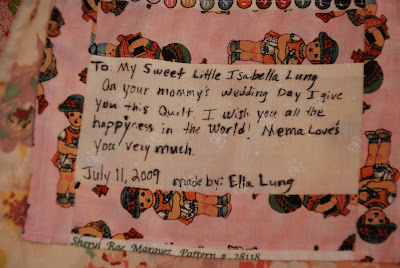 To: My Sweet Little Isabella Lung
On your mommy's wedding Day I give
you this Quilt. I wish you all the
happyness in the World! Mema Love's
You very much.
July 11, 2009 made by: Ella Lung
Sheryl Rae Marquez Pattern # 28118